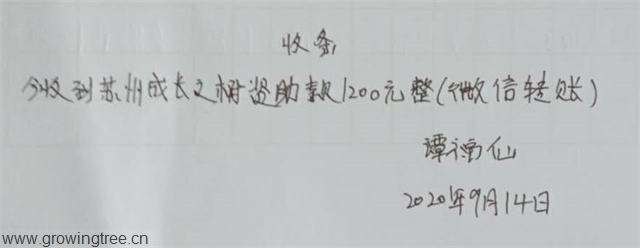 收条
今收到苏州成长之树资助款1200元整(微信转账)
谭福仙
2020年9月14日
www.growingtree.cn